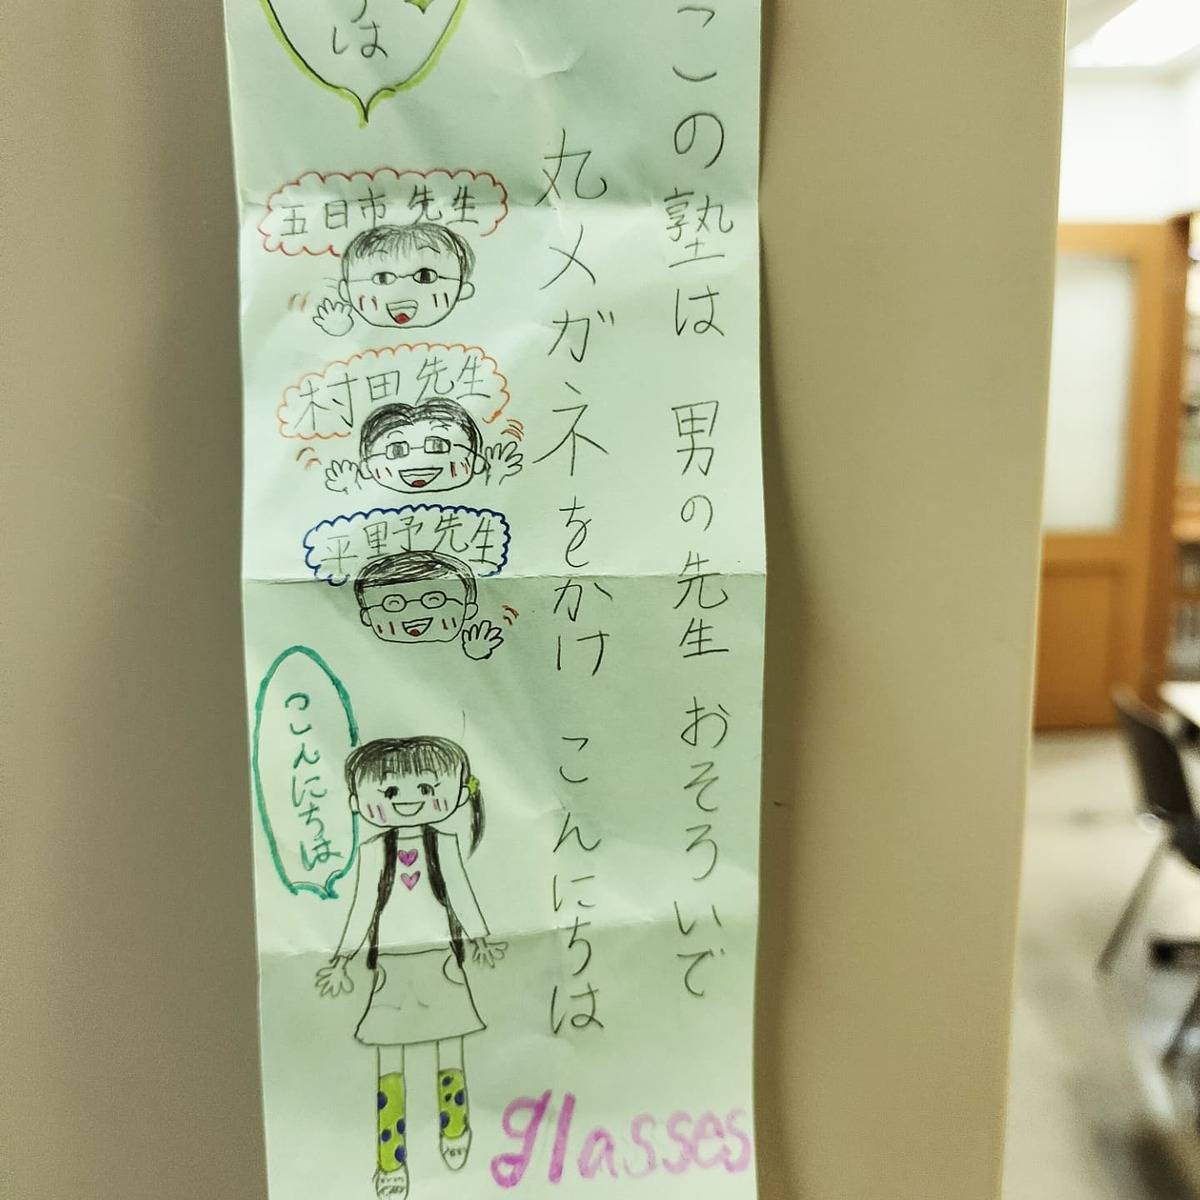 この塾は 男の先生 おそろいで
丸メガネをかけ こんにちは
は
五日市先生
村田先生
平野先生
こんにちは
glasses